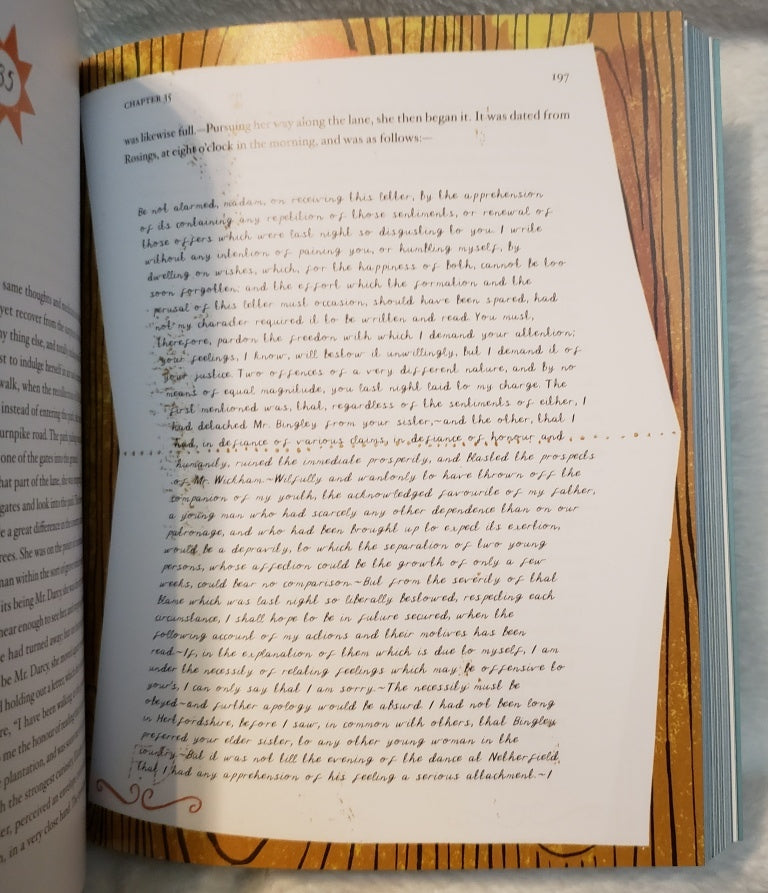 35
same thoughts and
yet recover from the
ny thing else, and totally
st to indulge herself in
walk, when the
instead of entering the park,
urnpike road. The park paling
one of the gates into the ground.
that part of the lane, she was
gates and look into the park. The
e a great difference in the
rees. She was on the point of
man within the sort of grove
its being Mr. Darcy, she was
near enough to see her, and
had turned away; but on
be Mr. Darcy, she moved again
holding out a letter, which
re, "I have been walking in
me the honour of reading
plantation, and was soon
h the strongest curiosity,
er, perceived an envelope
n, in a very close hand. The
CHAPTER 35
197
was likewise full.—Pursuing her way along the lane, she then began it. It was dated from
Rosings, at eight o'clock in the morning, and was as follows:—
Be not alarmed, madam, on receiving this letter, by the apprehension
of its containing any repetition of those sentiments, or renewal of
those offers which were last night so disgusting to you. I write
without any intention of paining you, or humbling myself, by
dwelling on wishes, which, for the happiness of both, cannot be too
soon forgotten; and the effort which the formation and the
perusal of this letter must occasion, should have been spared, had
not my character required it to be written and read. You must,
therefore, pardon the freedom with which I demand your attention;
your feelings, I know, will bestow it unwillingly, but I demand it of
your justice. Two offences of a very different nature, and by no
means of equal magnitude, you last night laid to my charge. The
first mentioned was, that, regardless of the sentiments of either, I
had detached Mr. Bingley from your sister,~and the other, that I
had, in defiance of various claims, in defiance of honour and
humanity, ruined the immediate prosperity, and blasted the prospects
of Mr. Wickham.~Wilfully and wantonly to have thrown off the
companion of my youth, the acknowledged favourite of my father,
a young man who had scarcely any other dependence than on our
patronage, and who had been brought up to expect its exertion,
would be a depravity, to which the separation of two young
persons, whose affection could be the growth of only a few
weeks, could bear no comparison.~But from the severity of that
blame which was last night so liberally bestowed, respecting each
circumstance, I shall hope to be in future secured, when the
following account of my actions and their motives has been
read.~If, in the explanation of them which is due to myself, I am
under the necessity of relating feelings which may be offensive to
your's, I can only say that I am sorry.~The necessity must be
obeyed~and further apology would be absurd. I had not been long
in Hertfordshire, before I saw, in common with others, that Bingley
preferred your elder sister, to any other young woman in the
country.~But it was not till the evening of the dance at Netherfield
that I had any apprehension of his feeling a serious attachment.~I